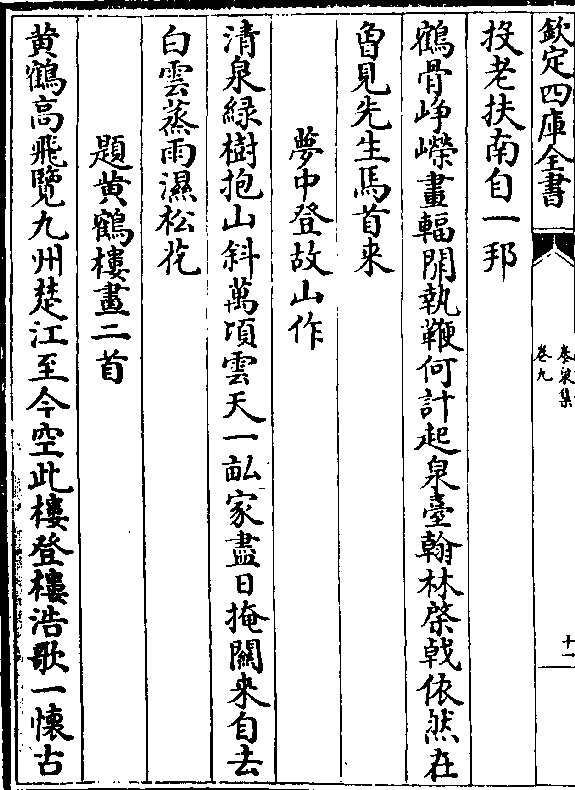 欽定四庫全書
卷九
十一
投老扶南自一邦
鶴骨崢嶸畫輻閒執鞭何計起泉臺翰林棨㦸依然在
曾見先生馬首来
夢中登故山作
清泉緑樹抱山斜萬頃雲天一畝家盡日掩關来自去
白雲蒸雨濕松花
題黄鶴樓畫二首
黄鶴高飛覽九州楚江至今空此樓登樓浩歌一懷古